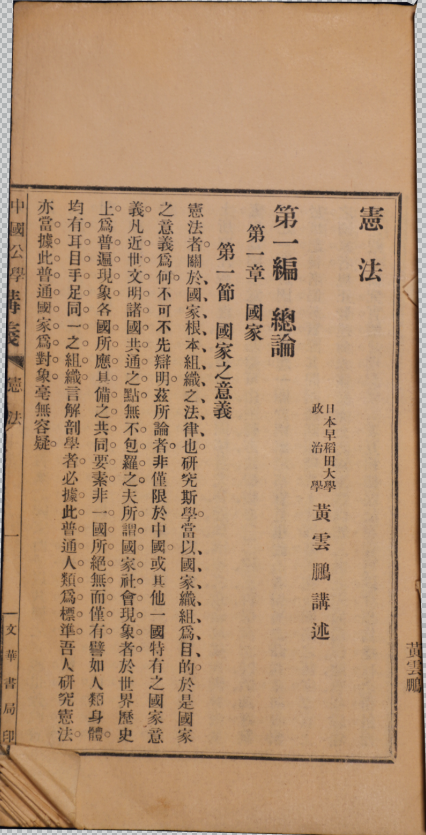 憲法
日本早稻田大學
政治學
黃雲鵬講述
第一編 總論
第一章 國家
第一節 國家之意義
憲法者關於國家根本組織之法律也研究斯學當以國家織組爲目的於是國家
之意義爲何不可不先辯明茲所論者非僅限於中國或其他一國特有之國家意
義凡近世文明諸國共通之點無不包羅之夫所謂國家社會現象者於世界歷史
上爲普遍現象各國所應具備之共同要素非一國所絕無而僅有譬如人類身體
均有耳目手足同一之組織言解剖學者必據此普通人類爲標準吾人研究憲法
亦當據此普通國家爲對象毫無容疑
中國公學講義 憲法 一 文華書局印
黃雲鵬